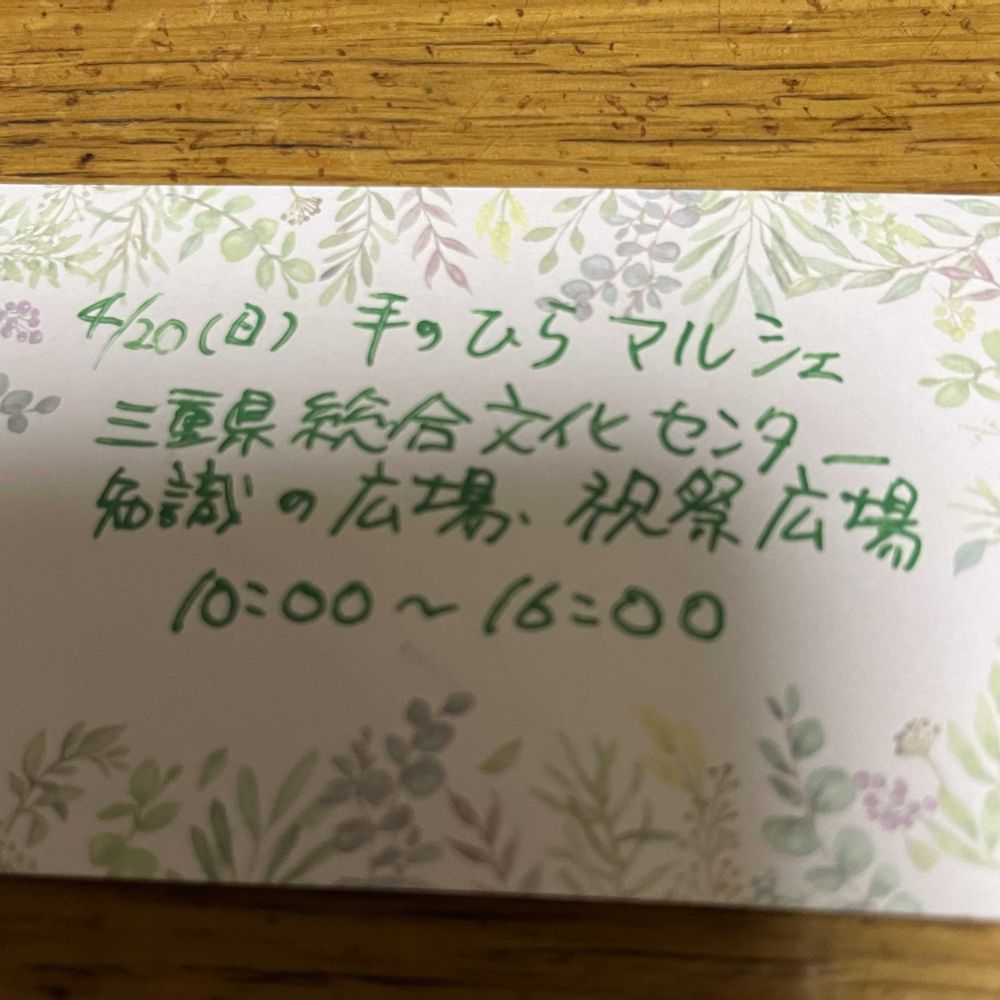 4/20(日) 手のひらマルシェ
三重県総合文化センター
知識の広場、祝祭広場
10:00〜16:00